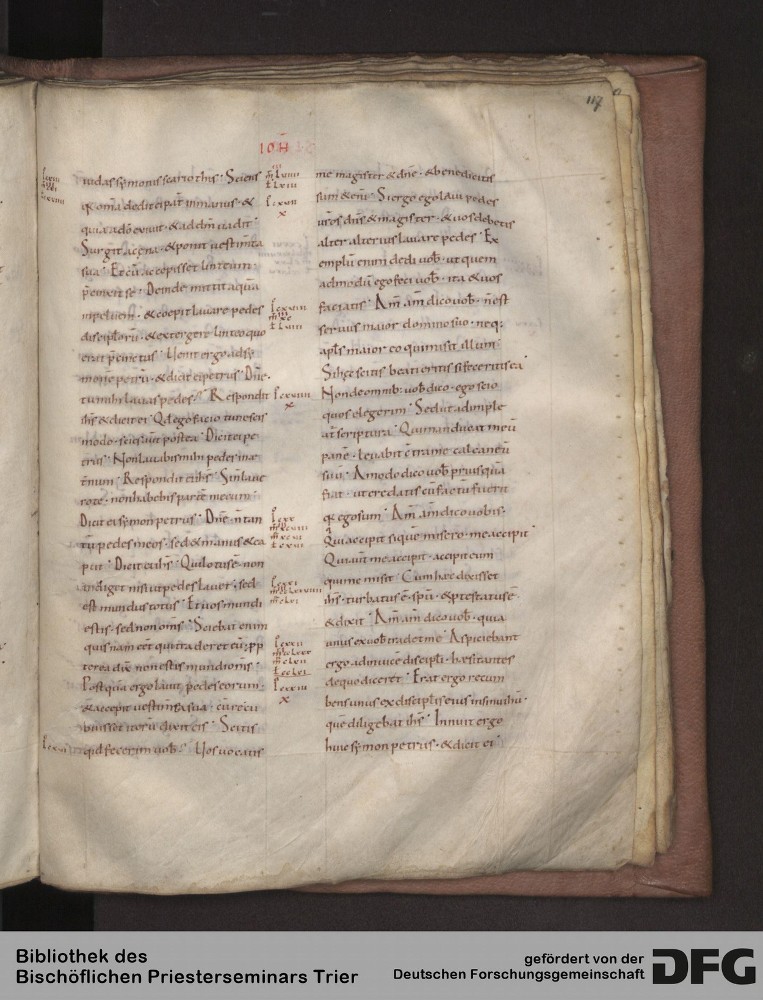 117
IOH
iudas symonis scariothis· Sciens
q̄ om̄a dedit ei pat̄ in manus· &
quia a dō exiuit· & ad dm̄ uadit·
Surgit a cęna· & ponit uestim̄ta
sua· Et cū accepisset linteum·
p̄cinxit se· Deinde mittit aquā
in peluem· & coepit lauare pedes
discipłorū· & extergere linteo quo
erat p̄cinctus· Uenit ergo ad sy
monē petrū· & dicit ei petrus· Dn̄e·
tu mihi lauas pedes? Respondit
ihs̄ & dicit ei· Qd́ ego facio tu nescis
modo· scies aut̄ postea· Dicit ei pe
trus· Non lauabis mihi pedes in æ
t̄num· Respondit ei ihs̄· Si n̄ laue
ro te· non habebis partē mecum·
Dicit ei symon petrus· Dn̄e· n̄ tan
tū pedes meos· sed & manus & ca
put· Dicit ei ihs̄· Qui lotus ē· non
indiget nisi ut pedes lauet· sed
est mundus totus· Et uos mundi
estis· sed non om̄s· Sciebat enim
quis nam eēt qui traderet eū; p̄p
terea dix̄ non estis mundi om̄s·
Postquā ergo lauit pedes eorum·
& accepit uestim̄ta sua· cū recu
buisset iterū dixit eis· Scitis
qd́ fecerim uob̄? Uos uocatis
me magister & dn̄e· & bene dicitis
sum & eni̅· Si ergo ego laui pedes
ur̄os dn̄s & magister· & uos debetis
alter alterius lauare pedes· Ex
emplū enim dedi uob̄· ut quem
admodū ego feci uob̄· ita & uos
faciatis· Am̄ am̄ dico uob̄· n̄ est
seruus maior domino suo· neq;
apłs maior eo qui misit illum·
Si hęc scitis beati eritis si feceritis ea·
Non de omnib; uob̄ dico· ego scio
quos elegerim· Sed ut adimple
at̄ scriptura· Qui manducat mecū
panē· leuabit c̄tra me calcaneū
suū· Amodo dico uob̄ priusquā
fiat· ut credatis cū factū fuerit
q̄ ego sum· Am̄ am̄ dico uobis·
Qui accipit si quē misero· me accipit·
Qui aut̄ me accipit· accipit eum
qui me misit· Cum hæc dixisset
ihs̄· turbatus ē· spū· & p̄testatus ē·
& dixit· Am̄ am̄ dico uob̄· quia
unus ex uob̄ tradet me· Aspiciebant
ergo ad inuicē discipłi· hæsitantes
de quo diceret· Erat ergo recum
bens unus ex discipłis eius in sinu ihū·
quē diligebat ihs̄· Innuit ergo
huic symon petrus· & dicit ei·
Bibliothek des
Bischöflichen Priesterseminars Trier
gefördert von der
Deutschen Forschungsgemeinschaft
DFG